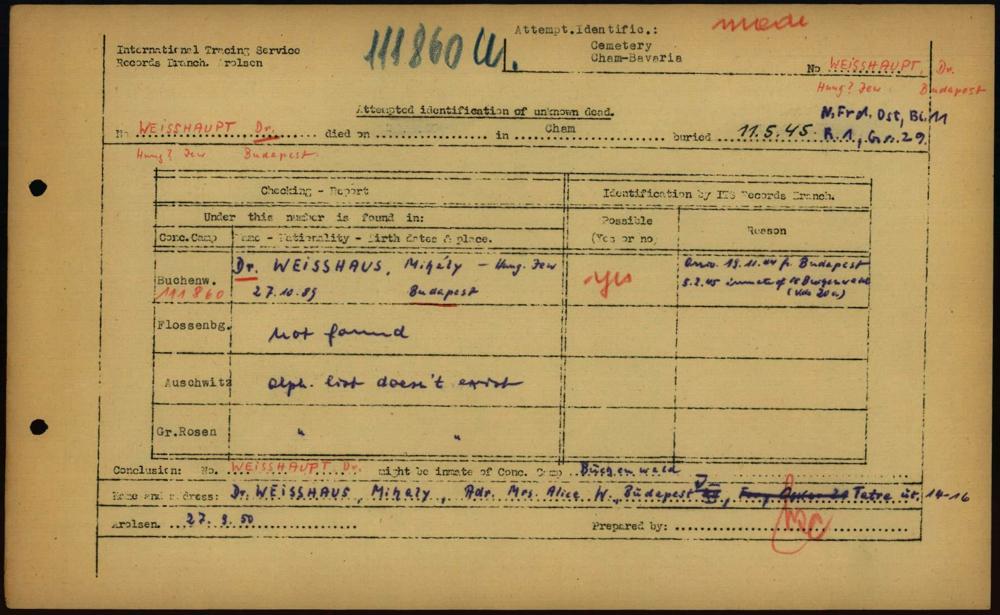 made
111860 U.
Attempt.Identific.:
Cemetery
Cham-Bavaria
International Tracing Service
Records Branch. Arolsen
No WEISSHAUPT, Dr.
Hung? Jew Budapest
Attempted identification of unknown dead.
N. Frdf. Ost, Bl. 11
No WEISSHAUPT Dr. died on in Cham buried 11.5.45. R.1, Gr. 29
Hung? Jew Budapest
Checking - Report Identification by ITS Records Branch.
Under this number is found in: Possible
Conc.Camp Name - Nationality - Birth dates & place. (Yes or no) Reason
Dr. WEISSHAUS, Mihály - Hung. Jew yes arriv. 19.11.44 fr. Budapest
Buchenw.
111860 27.10.89 Budapest 5.2.45 inmate of
(Kdo 20a)
Flossenbg. not found
Auschwitz alph. list doesn't exist
Gr.Rosen " "
Conclusion: No. WEISSHAUPT Dr. might be inmate of Conc. Camp Buchenwald
Name and address: Dr. WEISSHAUS, Mihaly, Adr. Mrs. Alice W., Budapest Tatra ut. 14-16
Arolsen. 27. 9. 50 Prepared by: